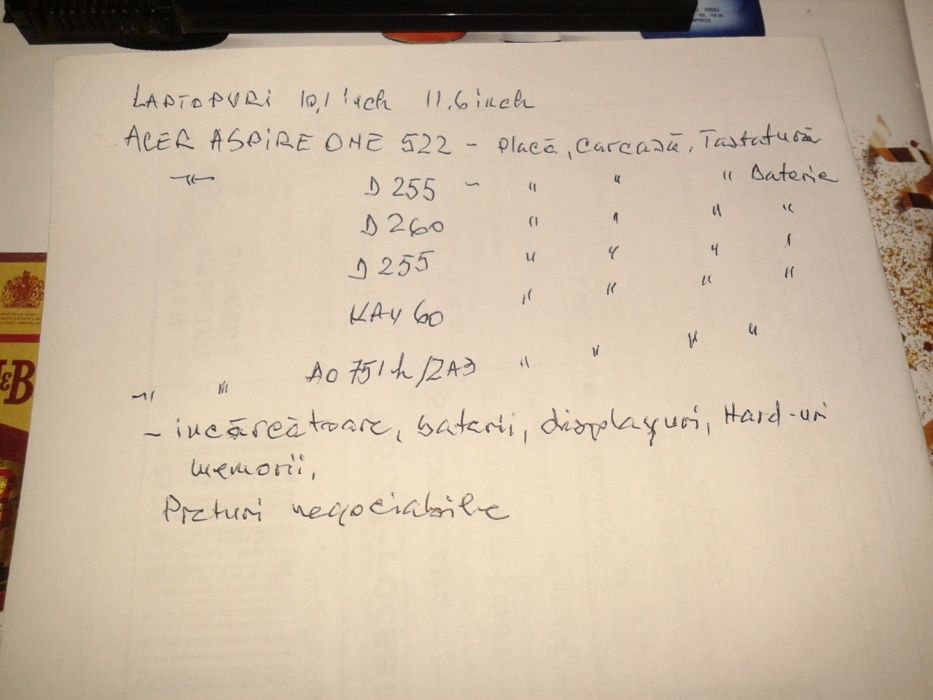 LAPTOPURI 10,1 inch 11,6 inch
ACER ASPIRE ONE 522 - Placă, Carcasă, Tastatură
-"- D 255 - " " " Baterie
D 260 " " " "
D 255 " " " "
KAV 60 " " " "
-" " AO 751h/ZA3 " " " "
- încărcătoare, baterii, displayuri, Hard-uri
memorii,
Prețuri negociabile
J&B